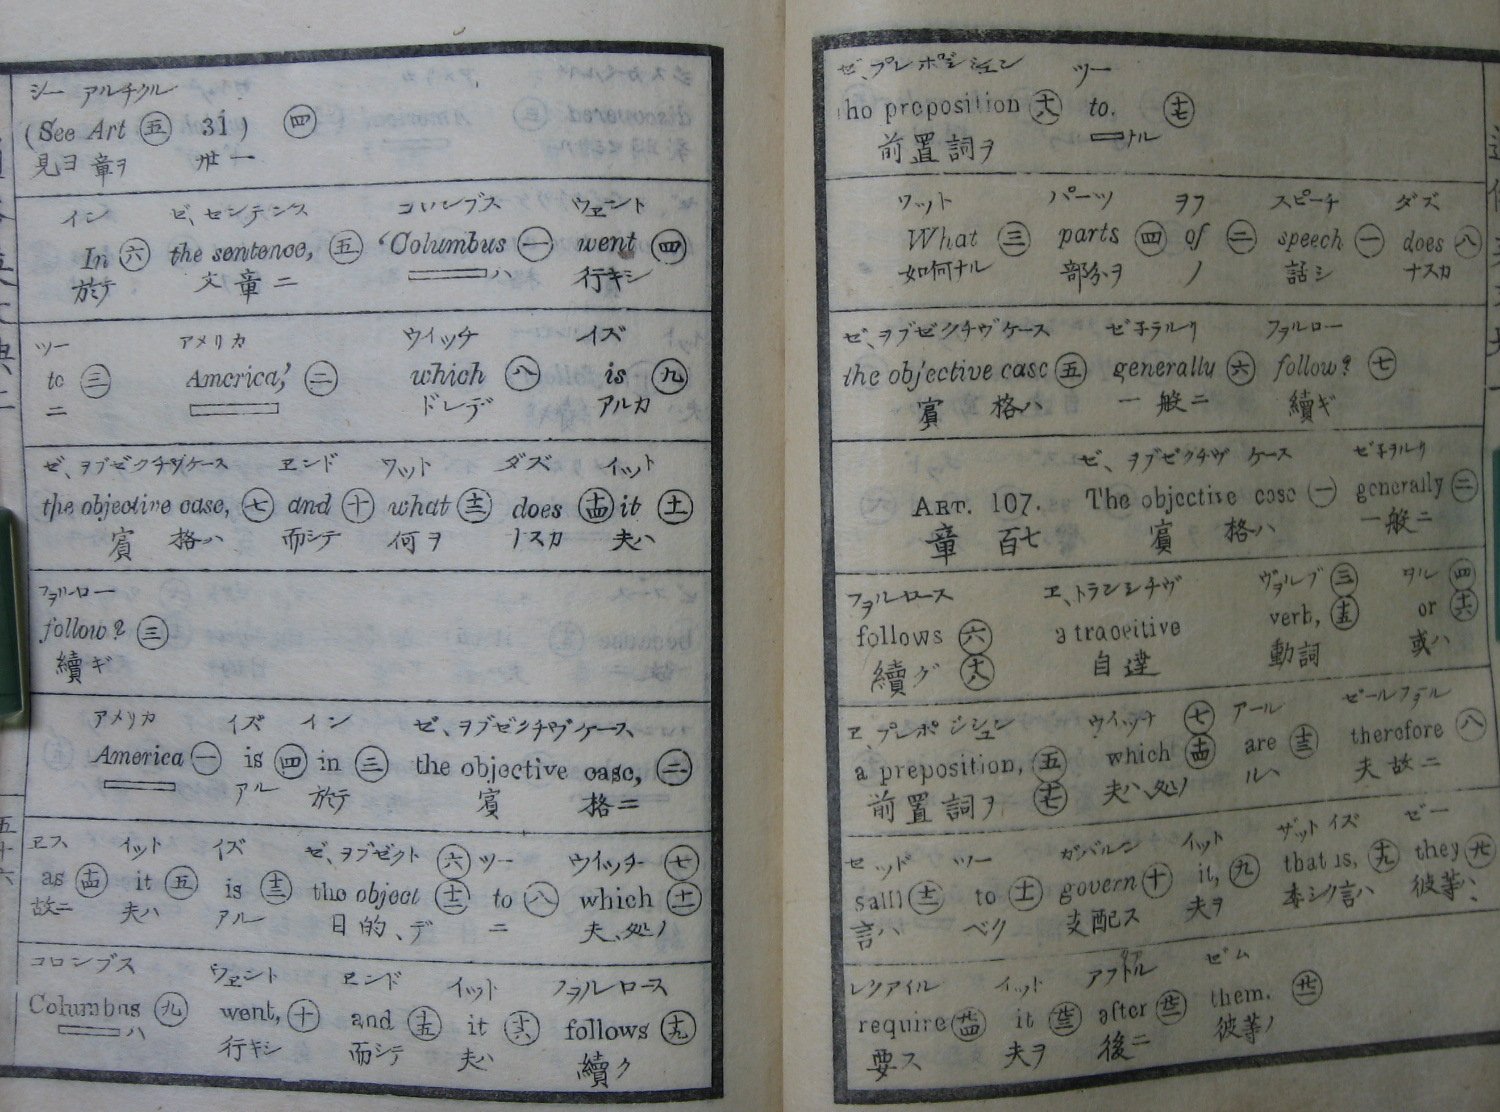 シー アルチクル
(See Art 五 31) 四
見ヨ 章ヲ 卅一
イン ゼ、センテンス コロンブス ウエント
In 六 the sentence, 五 ‘Columbus 一 went 四
於テ 文章ニ ハ 行キシ
ツー アメリカ ウイッチ イズ
to 三 America,’ 二 which 八 is 九
ニ ドレデ アルカ
ゼ、ヲブゼクチヴケース ヱンド ワット ダズ イット
the objective case, 七 and 十 what 十三 does 十四 it 十一
賓格ハ 而シテ 何ヲ ナスカ 夫ハ
フヲルロー
follow? 三
續ギ
アメリカ イズ イン ゼ、ヲブゼクチヴケース
America 一 is 四 in 三 the objective case, 二
アル 於テ 賓格ニ
ヱス イット イズ ゼ、ヲブゼクト 六 ツー ウイッチ 七
as 十四 it 五 is 十三 the object 十二 to 八 which 十一
故ニ 夫ハ アル 目的、デ ニ 夫、処ノ
コロンブス ウエント ヱンド イット フヲルロース
Columbus 九 went, 十 and 十五 it 十六 follows 十九
ハ 行キシ 而シテ 夫ハ 續ク
ゼ、プレポジション ツー
the preposition 十六 to. 十七
前置詞ヲ ナル
ワット パーツ ヲフ スピーチ ダズ
What 三 parts 四 of 二 speech 一 does 八
如何ナル 部分ヲ ノ 話シ ナスカ
ゼ、ヲブゼクチヴケース ゼ子ラルリ フヲルロー
the objective case 五 generally 六 follow? 七
賓格ハ 一般ニ 續ギ
ゼ、ヲブゼクチヴ ケース ゼ子ラルリ
ART. 107. The objective case 一 generally 二
章 百七 賓格ハ 一般ニ
フヲルロース ヱ、トランシチヴ ヴヲルブ 三 ヲル 四
follows 六 a transitive verb, 十五 or 十六
續グ 十八 自達 動詞 或ハ
ヱ、プレポジション ウイッチ 七 アール ゼールフヲル
a preposition, 五 which 十四 are 十三 therefore 八
前置詞ヲ 十七 夫ハ、処ノ ルハ 夫故ニ
セッド ツー ガバルン イット ザットイズ ゼー
said 十二 to 十一 govern 十 it, 九 that is, 十九 they 廿
言ハ ベク 支配ス 夫ヲ 委シク言ハ 彼等ハ、
レクアイル イット アフトル ゼム
require 廿四 it 廿三 after 廿二 them. 廿一
要ス 夫ヲ 後ニ 彼等ノ